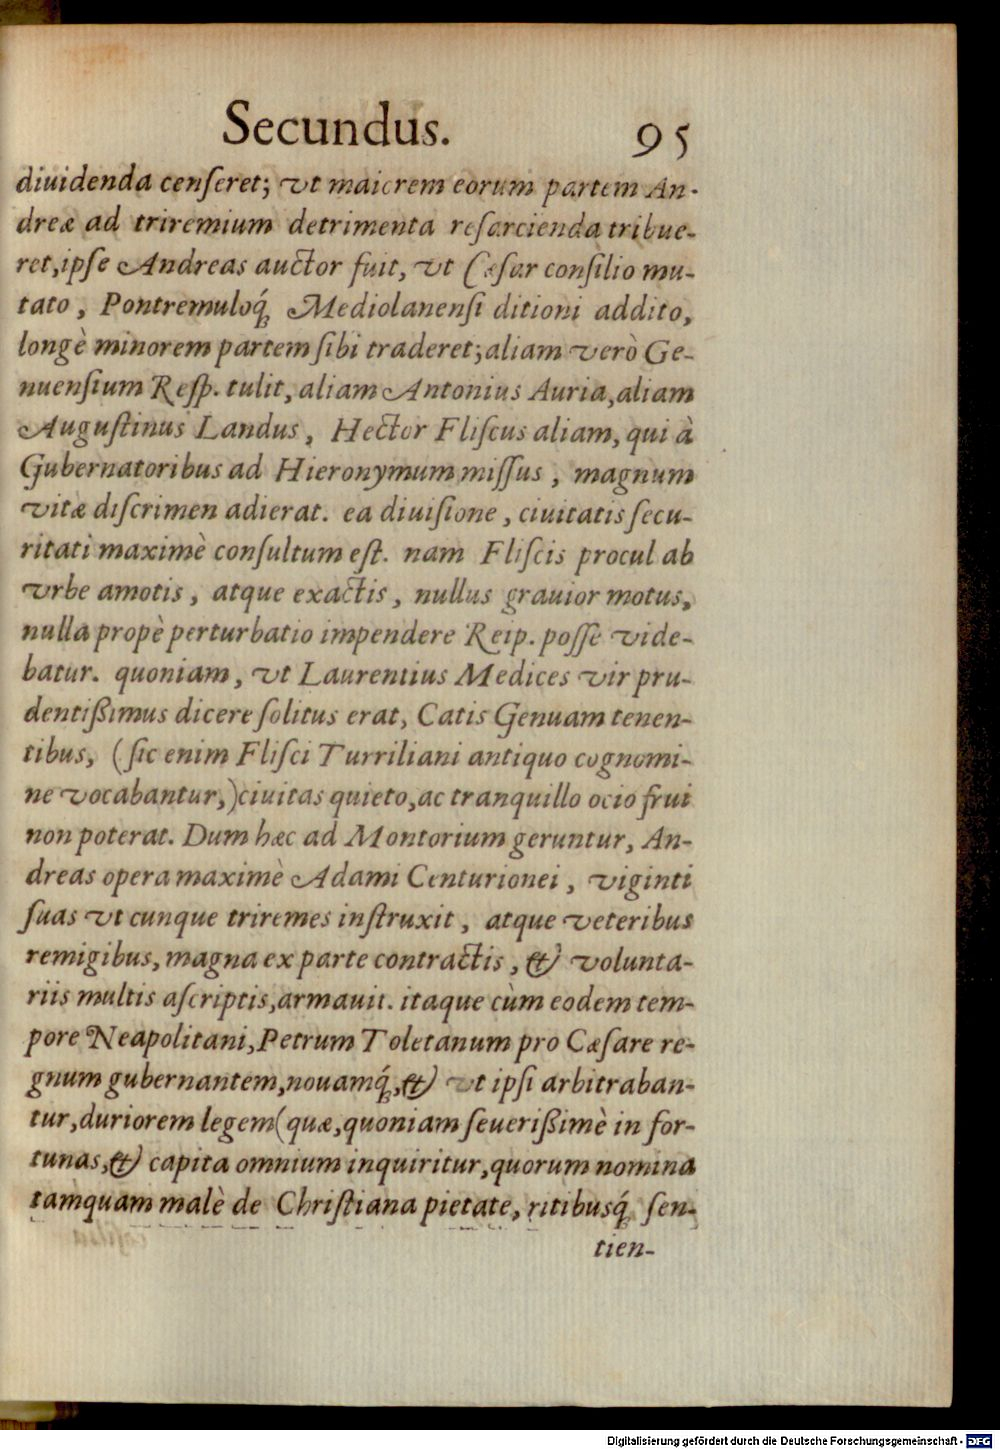 Secundus. 95
diuidenda cenſeret; vt maiorem eorum partem An-
dreæ ad triremium detrimenta reſarcienda tribue-
ret, ipſe Andreas auctor fuit, vt Cæſar conſilio mu-
tato, Pontremuloq́; Mediolanenſi ditioni addito,
longè minorem partem ſibi traderet; aliam verò Ge-
nuenſium Reſp. tulit, aliam Antonius Auria, aliam
Auguſtinus Landus, Hector Fliſcus aliam, qui à
Gubernatoribus ad Hieronymum miſſus, magnum
vitæ diſcrimen adierat. ea diuiſione, ciuitatis ſecu-
ritati maximè conſultum eſt. nam Fliſcis procul ab
vrbe amotis, atque exactis, nullus grauior motus,
nulla propè perturbatio impendere Reip. poſſe vide-
batur. quoniam, vt Laurentius Medices vir pru-
dentißimus dicere ſolitus erat, Catis Genuam tenen-
tibus, (ſic enim Fliſci Turriliani antiquo cognomi-
ne vocabantur,) ciuitas quieto, ac tranquillo ocio frui
non poterat. Dum hæc ad Montorium geruntur, An-
dreas opera maximè Adami Centurionei, viginti
ſuas vt cunque triremes inſtruxit, atque veteribus
remigibus, magna ex parte contractis, & volunta-
riis multis aſcriptis, armauit. itaque cùm eodem tem-
pore Neapolitani, Petrum Toletanum pro Cæſare re-
gnum gubernantem, nouamq́;, & vt ipſi arbitraban-
tur, duriorem legem (quæ, quoniam ſeuerißimè in for-
tunas, & capita omnium inquiritur, quorum nomina
tamquam malè de Chriſtiana pietate, ritibusq́; ſen-
tien-
Digitalisierung gefördert durch die Deutsche Forschungsgemeinschaft - DFG